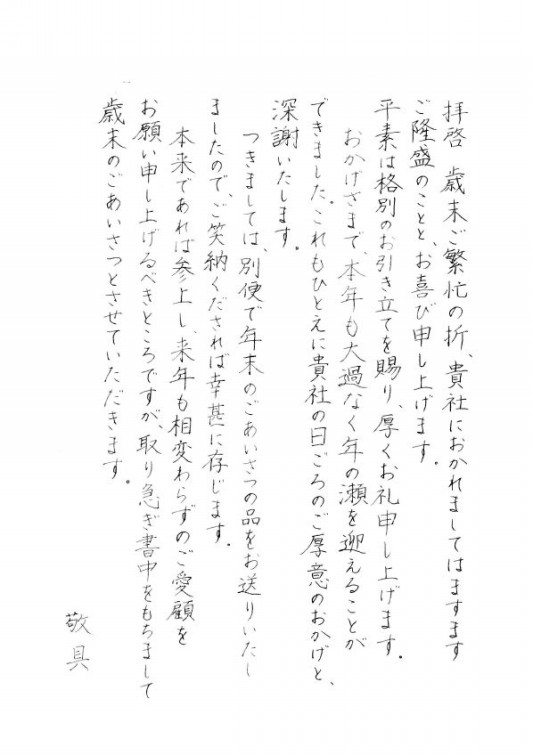 拝啓　歳末ご繁忙の折、貴社におかれましてはますます
ご隆盛のことと、お喜び申し上げます。
平素は格別のお引き立てを賜り、厚くお礼申し上げます。
おかげさまで、本年も大過なく年の瀬を迎えることが
できました。これもひとえに貴社の日ごろのご厚意のおかげと、
深謝いたします。
つきましては、別便で年末のごあいさつの品をお送りいたし
ましたので、ご笑納くだされば幸甚に存じます。
本来であれば参上し、来年も相変わらずのご愛顧を
お願い申し上げるべきところですが、取り急ぎ書中をもちまして
歳末のごあいさつとさせていただきます。
敬具